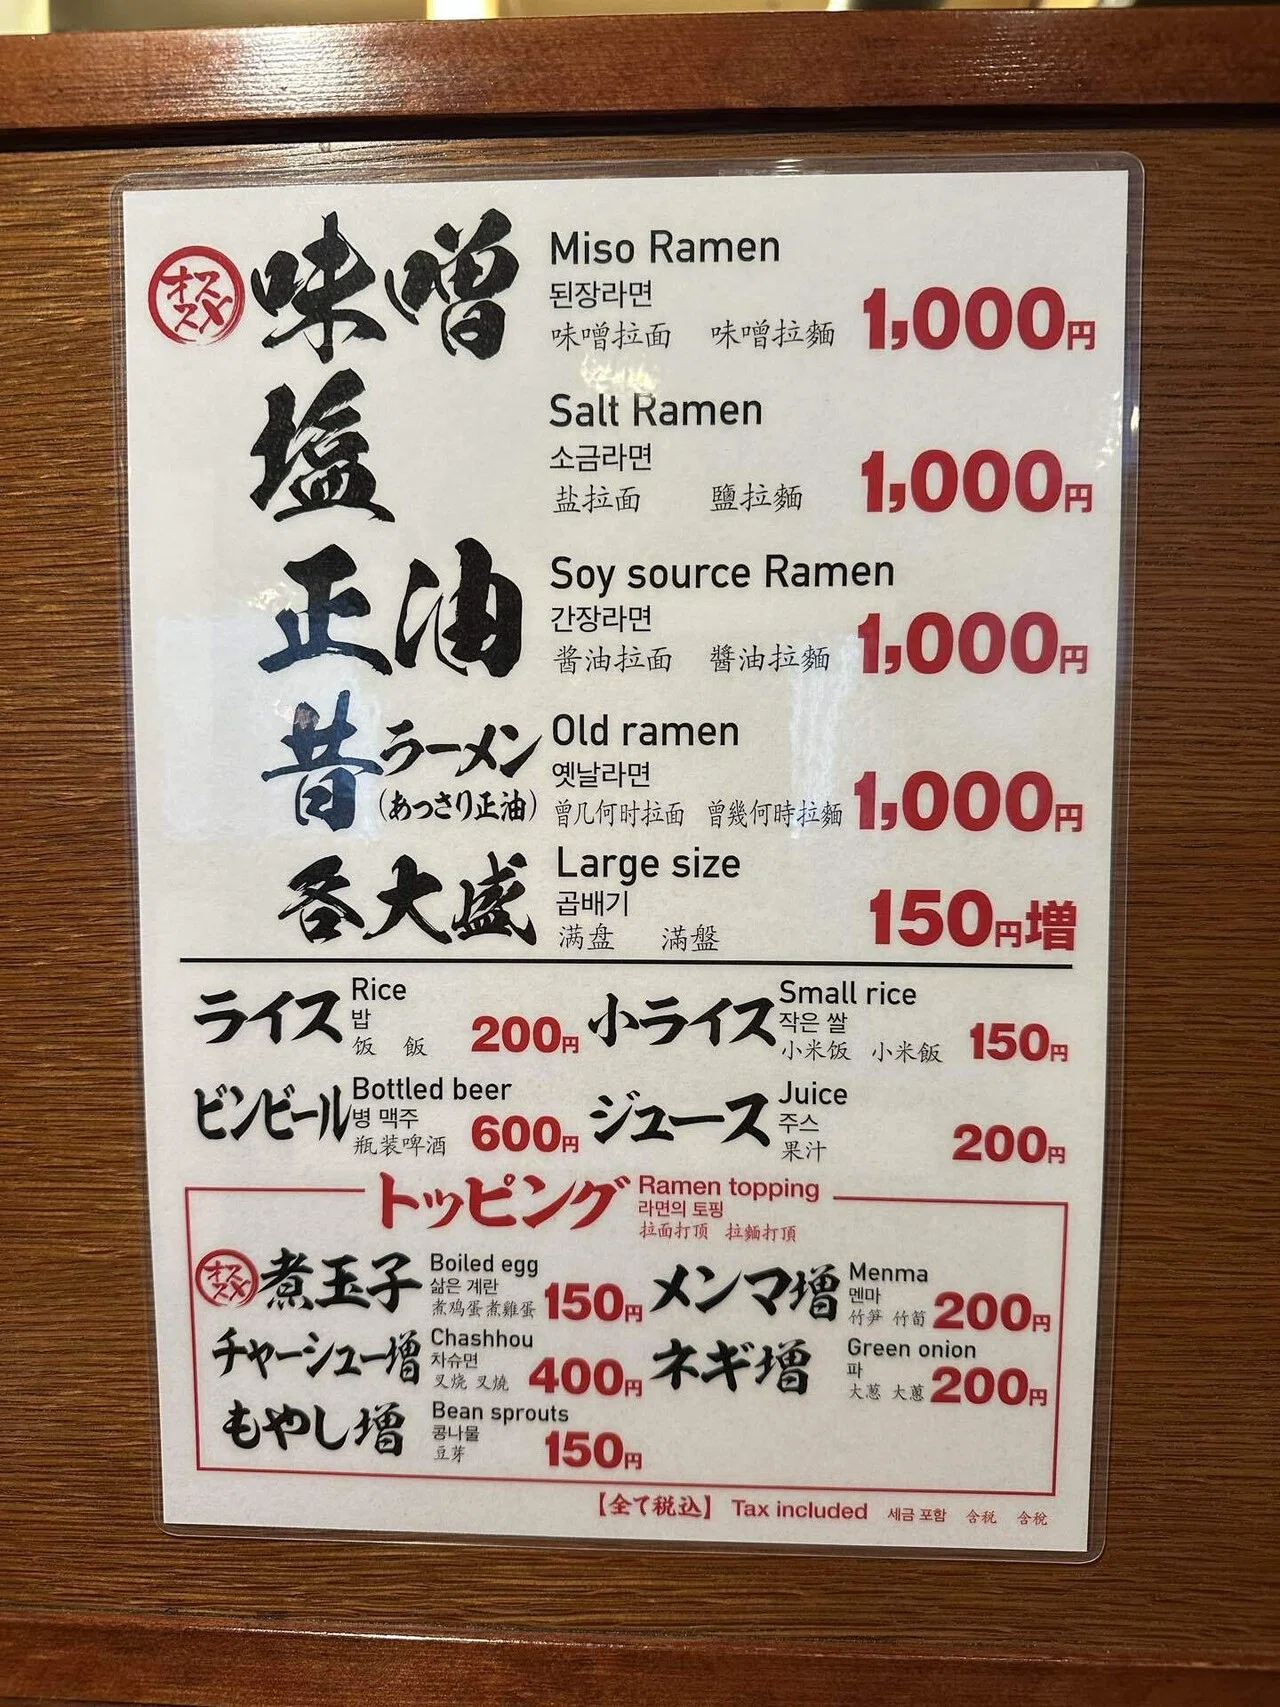 オススメ
味噌
Miso Ramen
된장라면
味噌拉面 味噌拉麵
1,000円
塩
Salt Ramen
소금라면
盐拉面 鹽拉麵
1,000円
正油
Soy source Ramen
간장라면
酱油拉面 醬油拉麵
1,000円
昔ラーメン
(あっさり正油)
Old ramen
옛날라면
曾几何时拉面 曾幾何時拉麵
1,000円
各大盛
Large size
곱배기
满盘 滿盤
150円増
ライス
Rice
밥
饭 飯
200円
小ライス
Small rice
작은 쌀
小米饭 小米飯
150円
ビンビール
Bottled beer
병 맥주
瓶装啤酒
600円
ジュース
Juice
주스
果汁
200円
トッピング
Ramen topping
라면의 토핑
拉面打顶 拉麵打頂
オススメ
煮玉子
Boiled egg
삶은 계란
煮鸡蛋 煮雞蛋
150円
メンマ増
Menma
멘마
竹笋 竹筍
200円
チャーシュー増
Chashhou
차슈면
叉烧 叉燒
400円
ネギ増
Green onion
파
大葱 大蔥
200円
もやし増
Bean sprouts
콩나물
豆芽
150円
【全て税込】 Tax included 세금 포함 含税 含稅